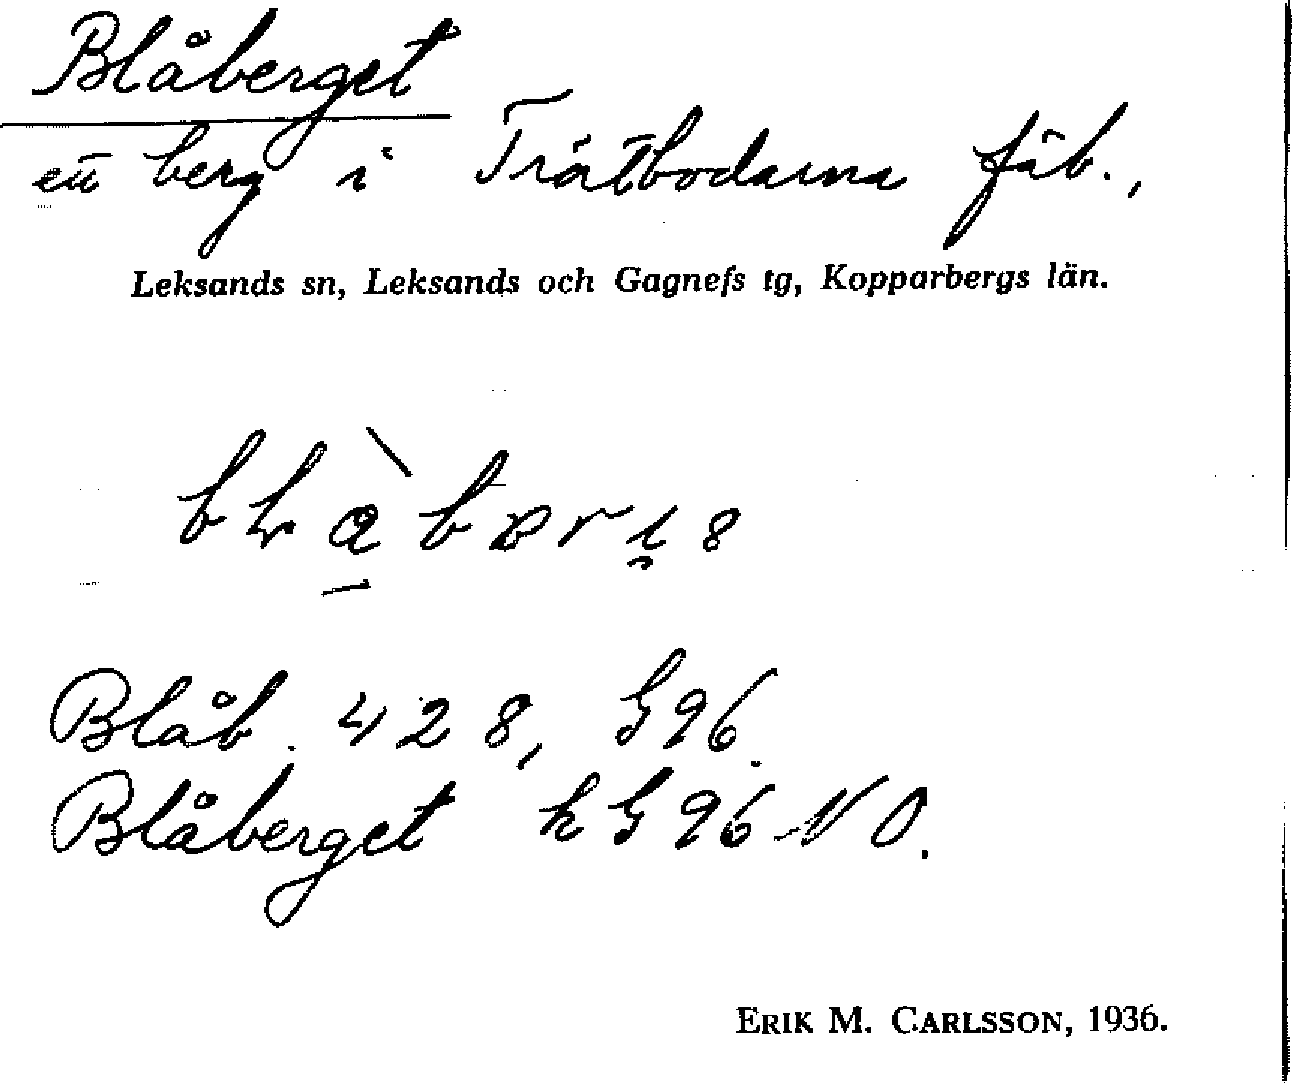 Blåberget
ett berg i Tråtbodarna fäb.,
Leksands sn, Leksands och Gagnefs tg, Kopparbergs län.
Blåb. 428, G96.
Blåberget k G96 NO.
ERIK M. CARLSSON, 1936.